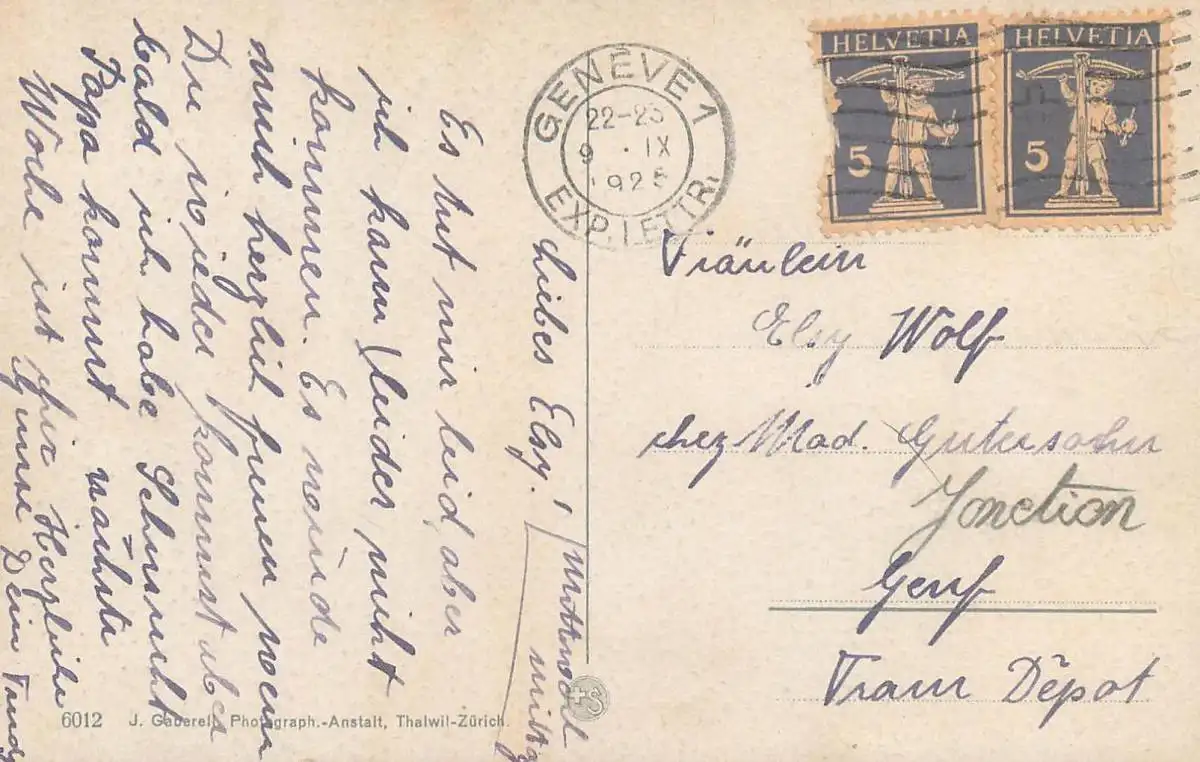 HELVETIA
5
HELVETIA
5
GENÈVE 1
22-23
9. IX
1925
EXP. LETTR.
Fräulein
Elsy Wolf
chez Mad. Gutersohn
Jonction
Genf
Tram Dépot
Mittwoch
mittg
Liebes Elsy!
Es tut mir leid, aber
ich kann leider nicht
kommen. Es würde
mich herzlich freuen wenn
Du wieder kommst aber
bald ich habe Sehnsucht
Papa kommt nächste
Woche ist hier Herzliche
Dein
6012 J. Gaberell, Photograph.-Anstalt, Thalwil-Zürich.